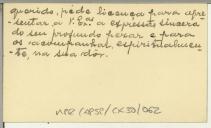 querido, pede licença para apre-
sentar a V. Exas a expressão sincera
do seu profundo pesar e para
os acompanhar, espiritualmen-
te, na sua dôr.